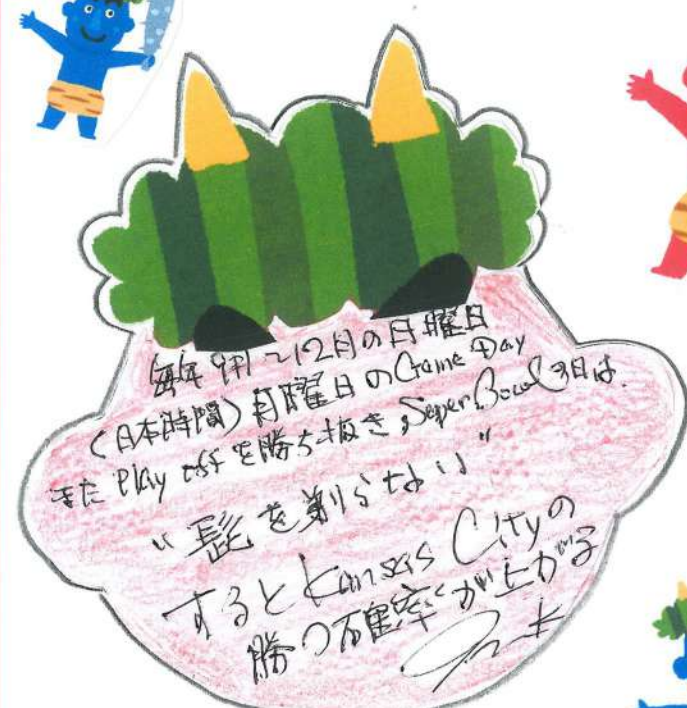 毎年 9月〜12月の月曜日
(日本時間)月曜日のGame Day
また Play offを勝ち抜き,Super Bowl 当日は.
“髭を剃らない”
するとKansas Cityの
勝つ確率が上がる